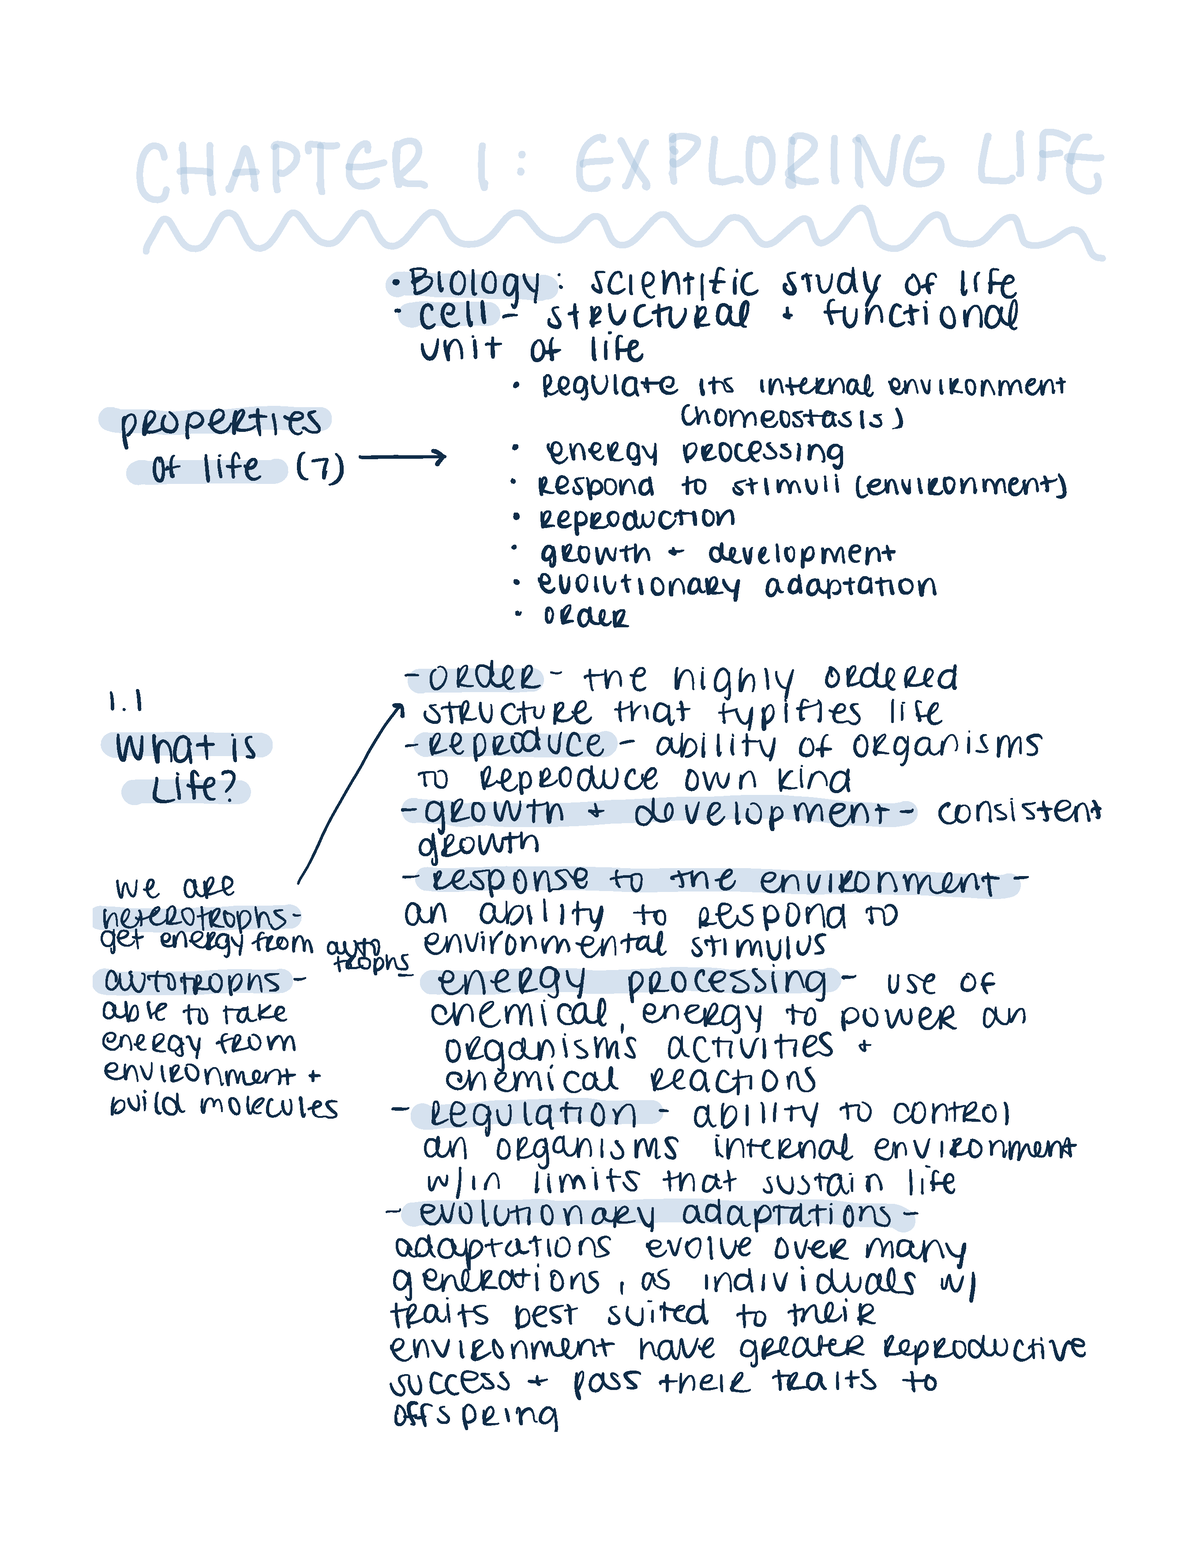 CHAPTER 1: EXPLORING LIFE
• Biology: scientific study of life
• cell - structural + functional
unit of life
properties
of life (7)
• regulate its internal environment
(homeostasis)
• energy processing
• respond to stimuli (environment)
• reproduction
• growth + development
• evolutionary adaptation
• order
1.1
What is
Life?
we are
heterotrophs-
get energy from auto
trophs
autotrophs -
able to take
energy from
environment +
build molecules
- order - the highly ordered
structure that typifies life
- reproduce - ability of organisms
to reproduce own kind
- growth + development - consistent
growth
- response to the environment -
an ability to respond to
environmental stimulus
- energy processing - use of
chemical, energy to power an
organisms activities +
chemical reactions
- regulation - ability to control
an organisms internal environment
w/in limits that sustain life
- evolutionary adaptations -
adaptations evolve over many
generations, as individuals w/
traits best suited to their
environment have greater reproductive
success + pass their traits to
offspring